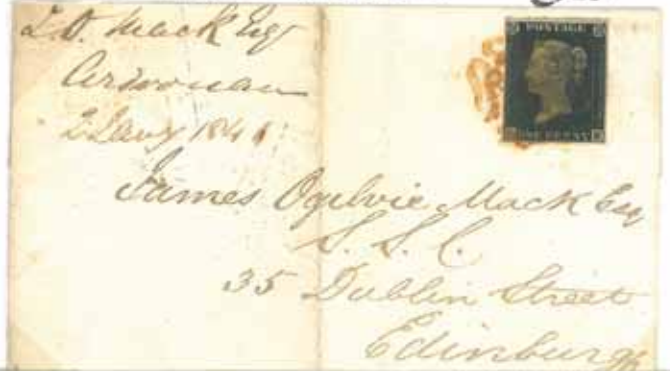 Mack Esq
2 Jany 1841
POSTAGE
ONE PENNY
James Ogilvie Mack Esq
S. S. C.
35 Dublin Street
Edinburgh